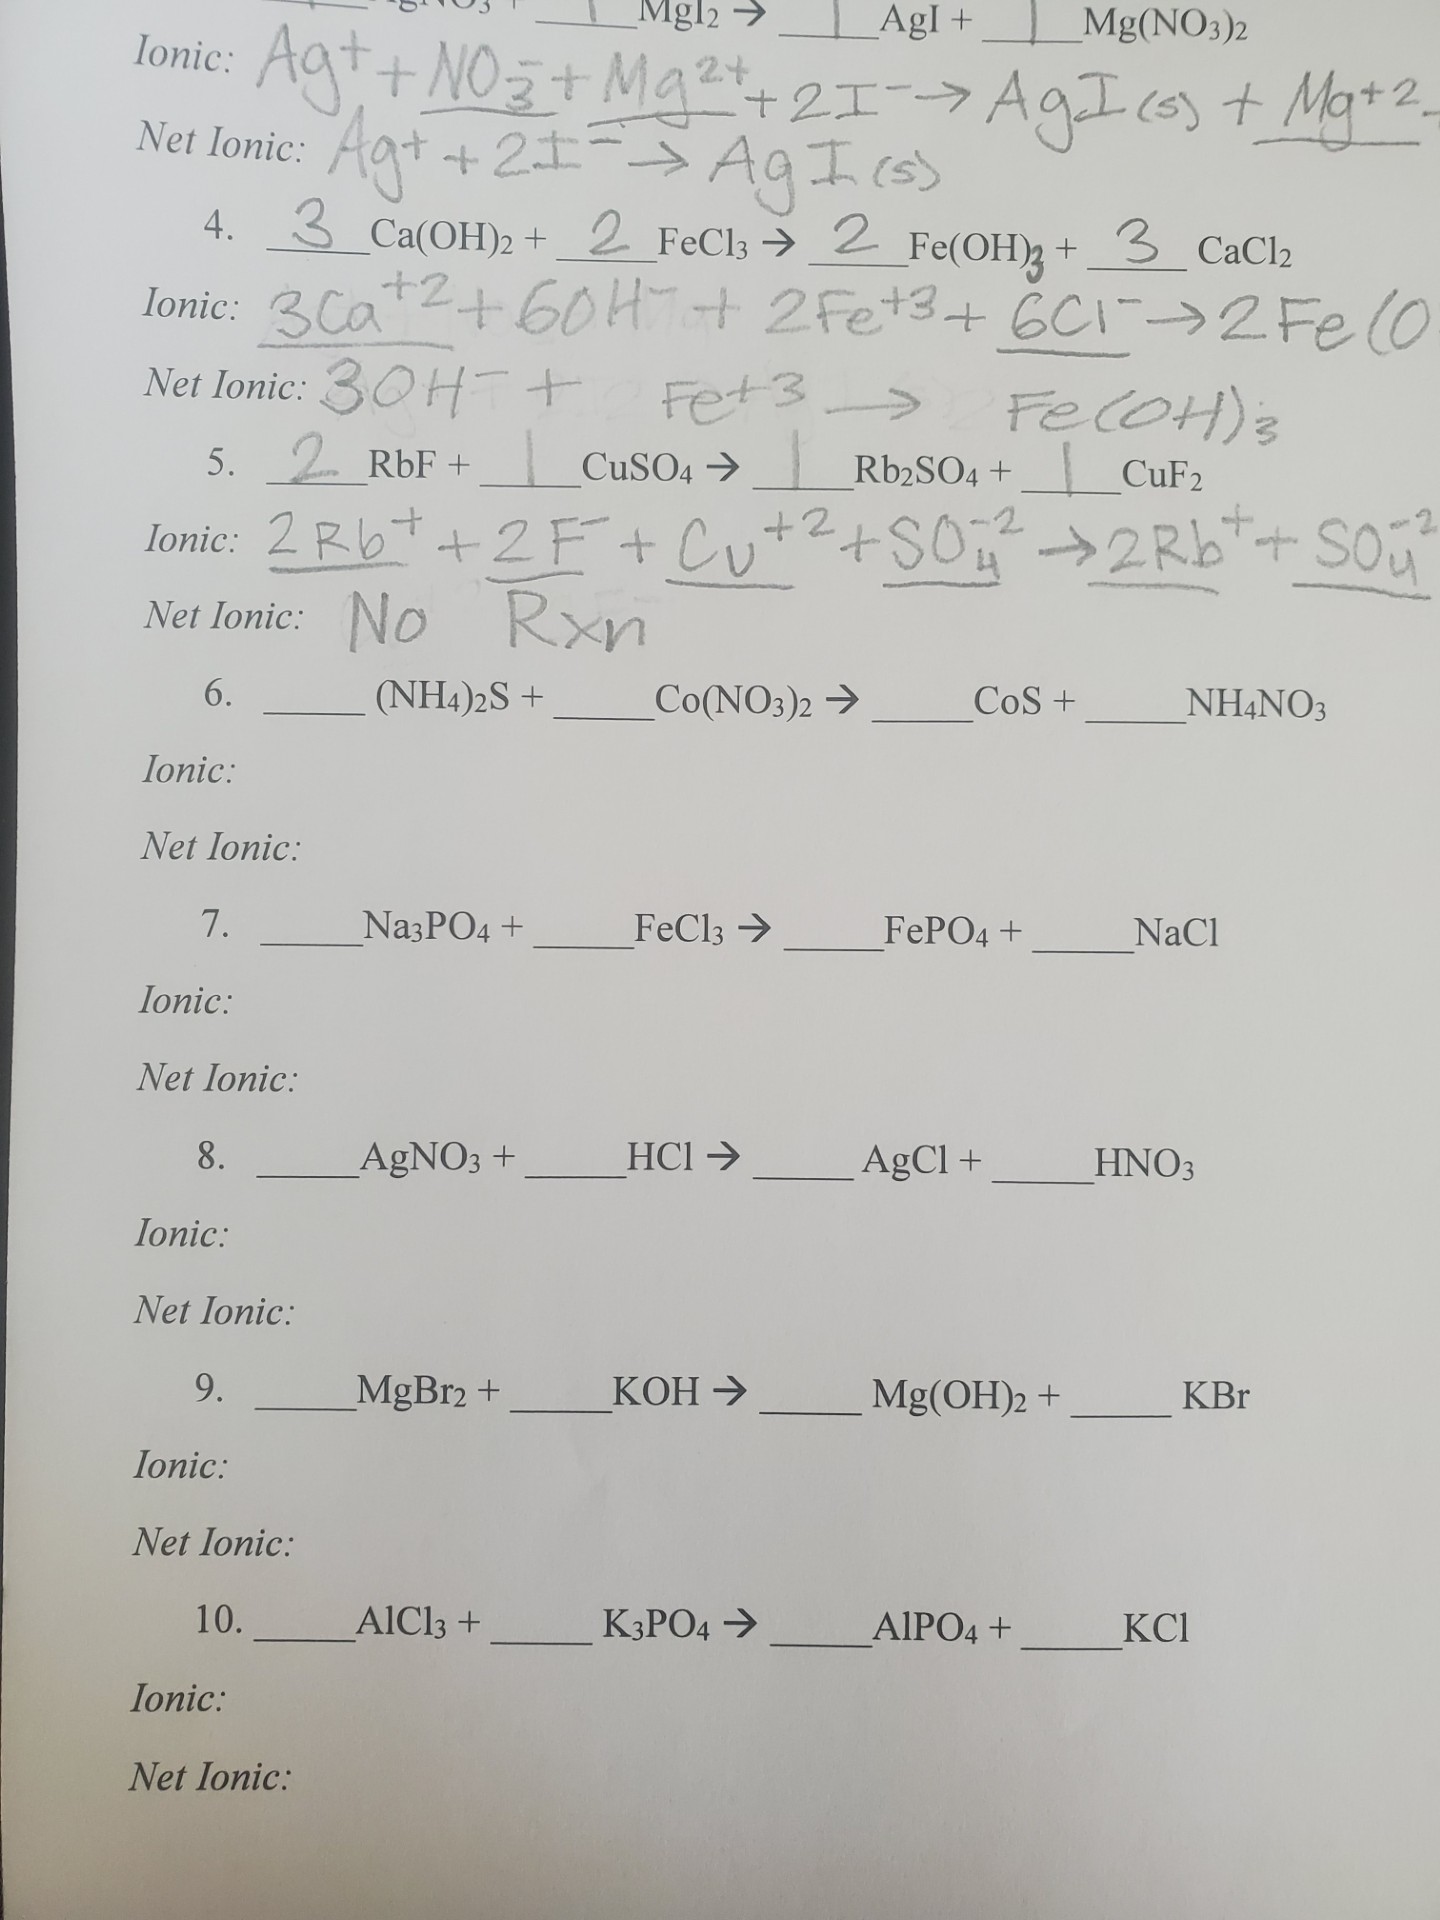 AgNO3 + 1 MgI2 → 1 AgI + 1 Mg(NO3)2
Ionic: Ag+ + NO3- + Mg2+ + 2I- → AgI(s) + Mg+2
Net Ionic: Ag+ + 2I- → AgI(s)
4. 3 Ca(OH)2 + 2 FeCl3 → 2 Fe(OH)3 + 3 CaCl2
Ionic: 3Ca+2 + 6OH- + 2Fe+3 + 6Cl- → 2Fe(O
Net Ionic: 3OH- + Fe+3 → Fe(OH)3
5. 2 RbF + 1 CuSO4 → 1 Rb2SO4 + 1 CuF2
Ionic: 2Rb+ + 2F- + Cu+2 + SO4-2 → 2Rb+ + SO4-2
Net Ionic: No Rxn
6. ____ (NH4)2S + ____ Co(NO3)2 → ____ CoS + ____ NH4NO3
Ionic:
Net Ionic:
7. ____ Na3PO4 + ____ FeCl3 → ____ FePO4 + ____ NaCl
Ionic:
Net Ionic:
8. ____ AgNO3 + ____ HCl → ____ AgCl + ____ HNO3
Ionic:
Net Ionic:
9. ____ MgBr2 + ____ KOH → ____ Mg(OH)2 + ____ KBr
Ionic:
Net Ionic:
10. ____ AlCl3 + ____ K3PO4 → ____ AlPO4 + ____ KCl
Ionic:
Net Ionic: